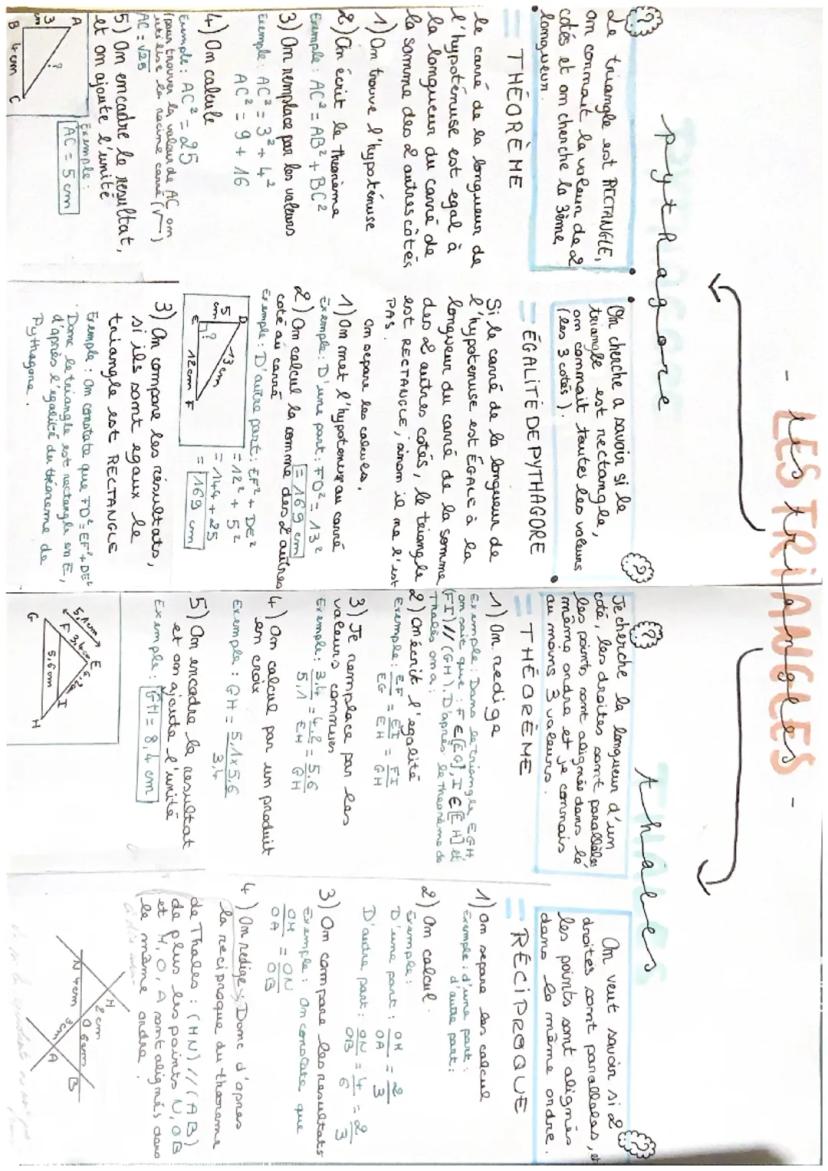 - LES triangles -
pythagore
thales
Le triangle est RECTANGLE,
on connait la valeur de 2
cotés et on cherche la 3ème
longueur.
= THÉORÈME
le carré de la longueur de
l'hypoténuse est egal à
la longueur du carré de
la somme des 2 autres côtés
1) On trouve l'hypoténuse
2) On écrit le theorème
Exemple : AC² = AB² + BC²
3) On remplace par les valeurs
Exemple : AC² = 3² + 4²
AC² = 9 + 16
4) On calcule
Exemple : AC² = 25
(pour trouver la valeur de AC on
utilise la racine carré (√))
AC = √25
5) On encadre le resultat,
et on ajoute l'unité
Exemple :
AC = 5 cm
A
3
?
B
4 cm
C
On cherche a savoir si le
triangle est rectangle,
on connait toutes les valeurs
(des 3 cotés).
= ÉGALITÉ DE PYTHAGORE
Si le carré de la longueur de
l'hypotenuse est ÉGALE à la
longueur du carré de la somme
des 2 autres cotés, le triangle
est RECTANGLE, sinon il ne l'est
PAS.
On separe les calculs.
1) On met l'hypotenuse au carré
Exemple : D'une part : FD² = 13²
= 169 cm
2) On calcul la somme des 2 autres
coté au carré
Exemple : D'autre part : EF² + DE²
= 12² + 5²
= 144 + 25
= 169 cm
D
5
cm
13 cm
?
E
12 cm
F
3) On compare les résultats,
si ils sont egaux le
triangle est RECTANGLE
Exemple : On constate que FD² = EF² + DE²
Donc le triangle est rectangle en E,
d'après l'égalité du theoreme de
Pythagore.
Je cherche la longueur d'un
coté, les droites sont paralleles
les points sont alignés dans le
même ordre et je connais
au moins 3 valeurs.
= THÉORÈME
1) On redige
Exemple : Dans le triangle EGH
on sait que : F ∈ [EG], I ∈ [EH] et
(FI) // (GH). D'après le theoreme de
Thales on a :
2) On écrit l'egalité
Exemple : EF/EG = EI/EH = FI/GH
3) Je remplace par les
valeurs connues
Exemple : 3,4/5,1 = 4,2/EH = 5,6/GH
4) On calcul par un produit
en croix
Exemple : GH = 5,1×5,6/3,4
5) On encadre le resultat
et on ajoute l'unité
Exemple : GH = 8,4 cm
E
5,1cm
F
I
5,6cm
G
H
On veut savoir si 2
droites sont paralleles, et
les points sont alignés
dans le même ordre.
= RÉCIPROQUE
1) on separe les calcul
Exemple : d'une part :
d'autre part :
2) On calcul.
Exemple :
D'une part : OH/OA = 2/3
D'autre part : ON/OB = 4/6 = 2/3
3) On compare les resultats
Exemple : On constate que
OH/OA = ON/OB
4) On redige : Donc d'apres
la réciproque du theoreme
de Thales : (HN) // (AB)
de plus les points N, O B
et H, O, A sont alignés dans
le même ordre.
H
2 cm
N
4cm
O
6cm
B
3cm
A